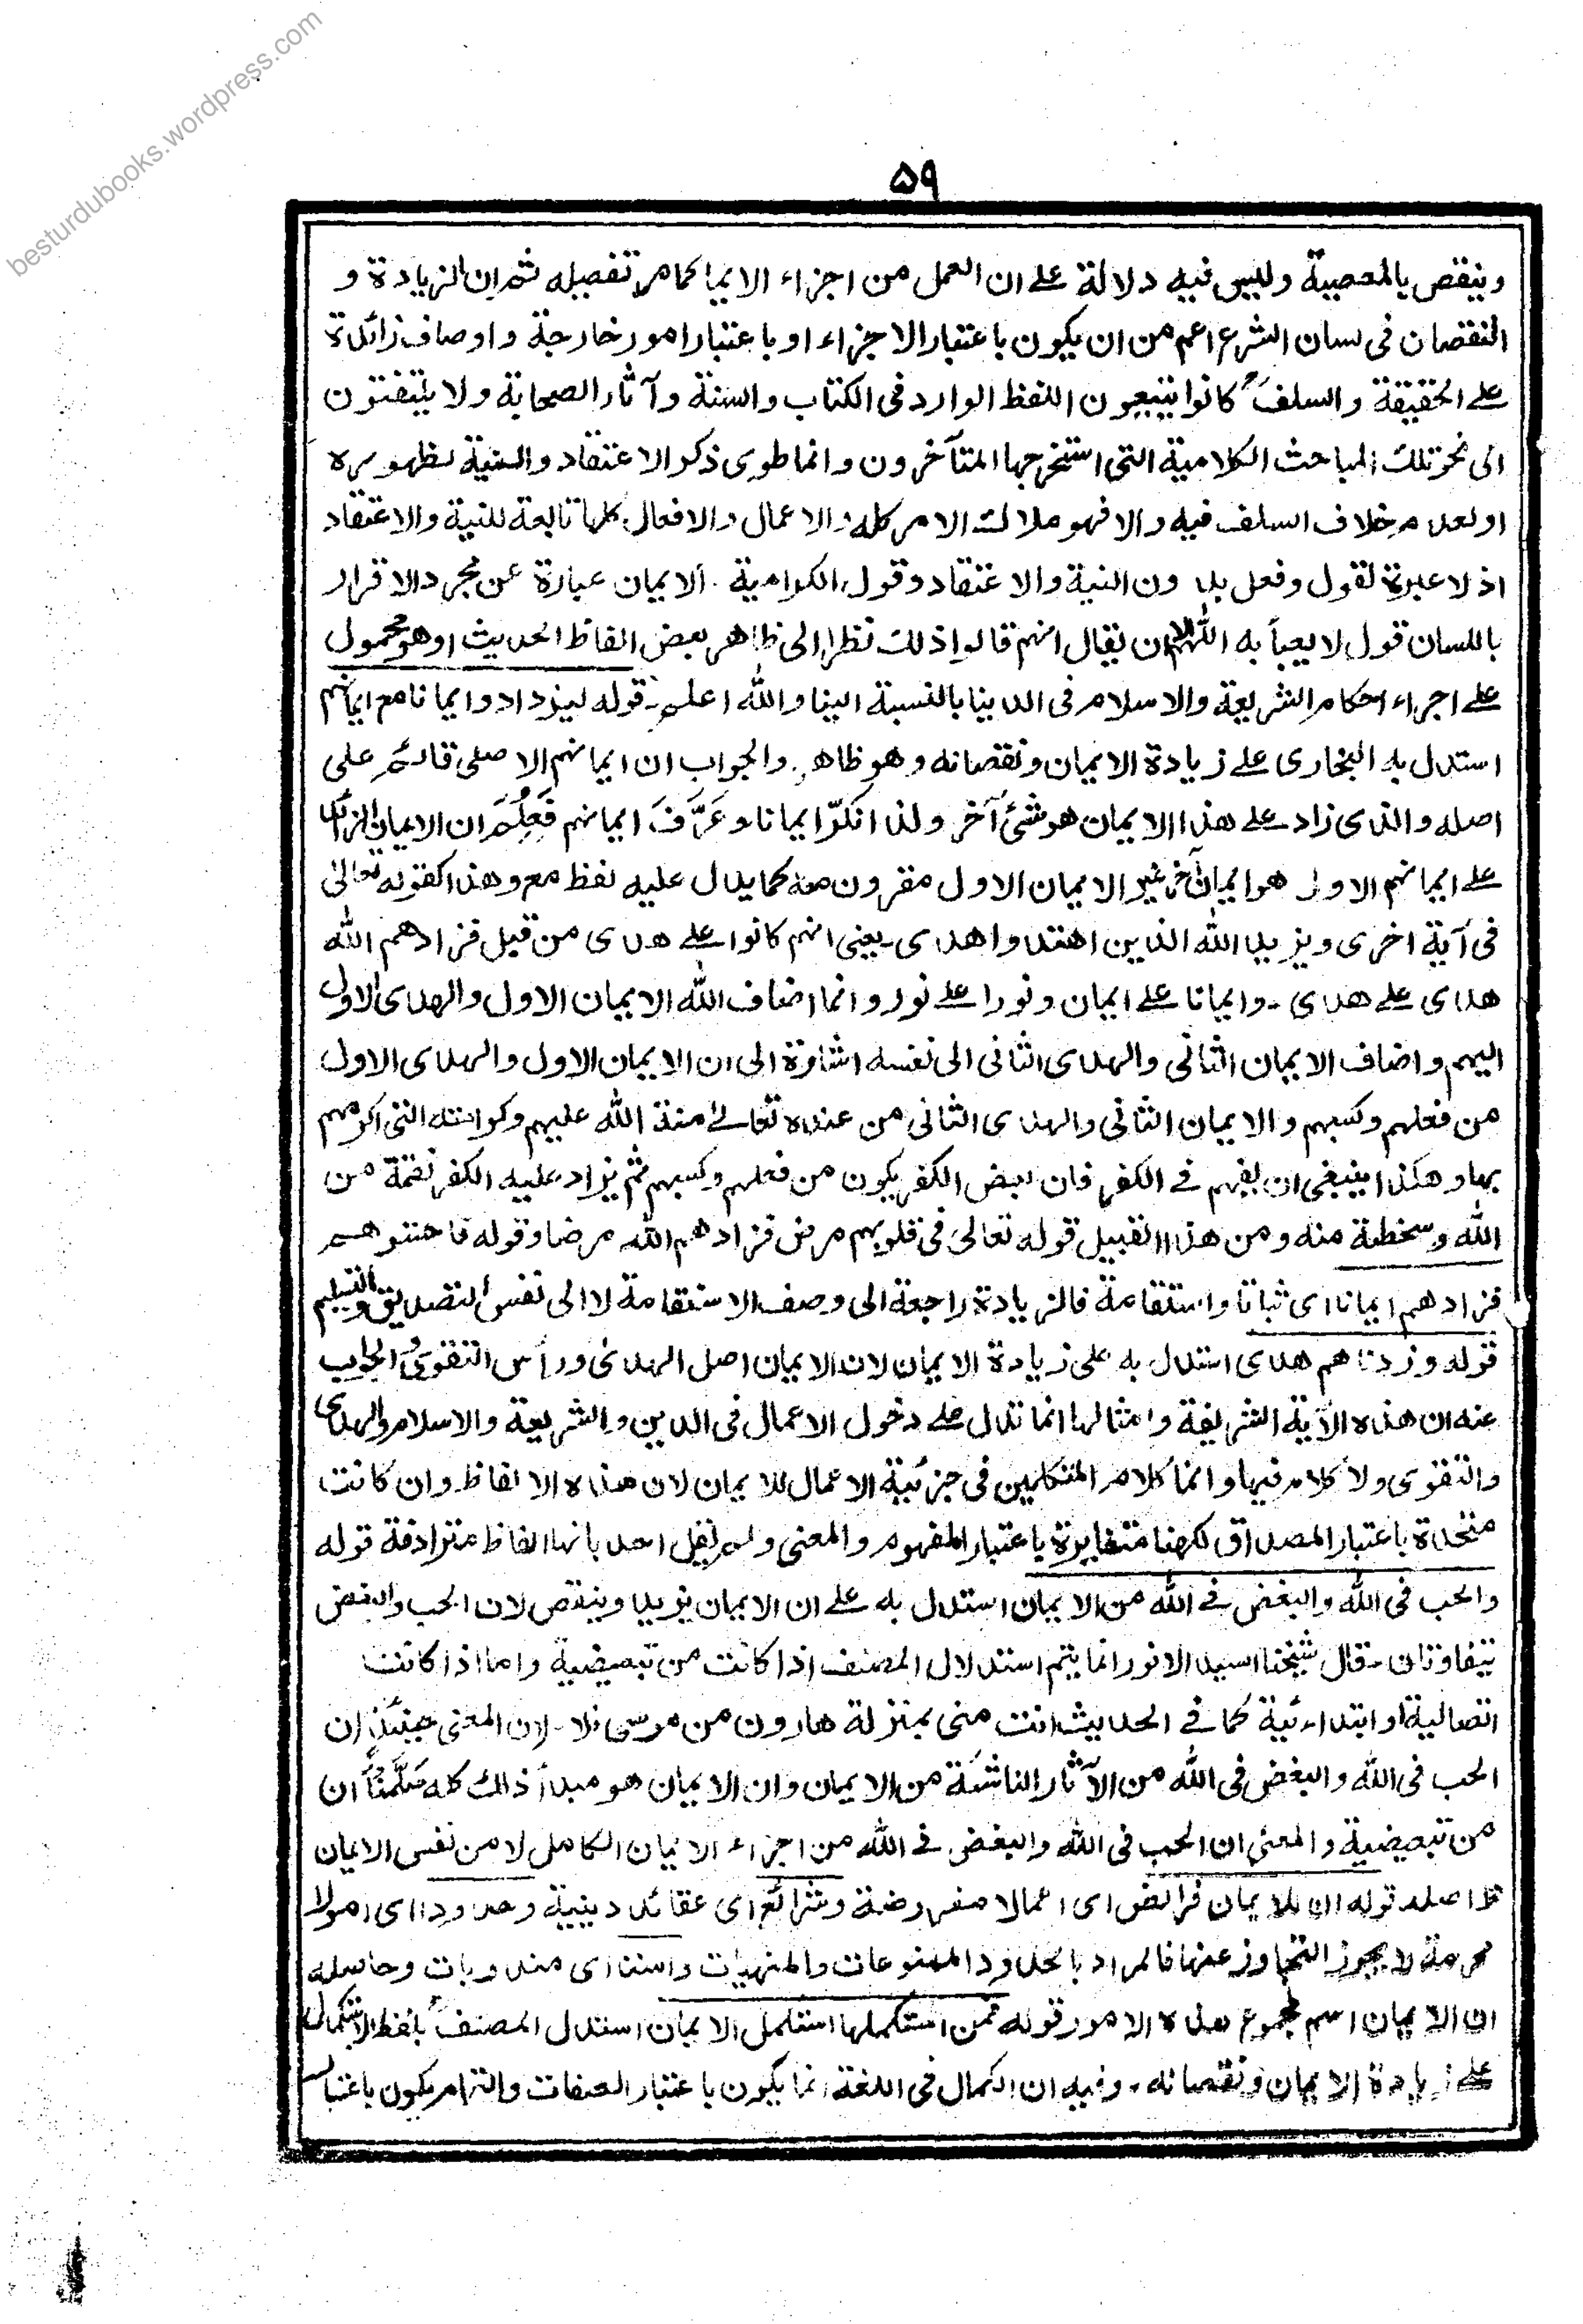 besturdubooks.wordpress.com
۵۹
وينقص بالمعصية وليس فيه دلالة على ان العمل من اجزاء الايمان كما مر تفصيله ثم ان الزيادة و
النقصان فى لسان الشرع اعم من ان يكون باعتبار الاجزاء او باعتبار امور خارجة و اوصاف زائدة
على الحقيقة والسلف كانوا يتبعون اللفظ الوارد فى الكتاب والسنة وآثار الصحابة ولا يلتفتون
الى نحو تلك المباحث الكلامية التى استخرجها المتآخرون وانما طوى ذكر الاعتقاد والنية لظهوره
او لعدم خلاف السلف فيه والا فهو ملاك الامر كله والاعمال والافعال كلها تابعة للنية والاعتقاد
اذ لا عبرة لقول وفعل بدون النية والاعتقاد وقول الكرامية الايمان عبارة عن مجرد الاقرار
باللسان قول لا يعبأ به اللهم الا ان يقال انهم قالوا ذلك نظرا الى ظاهر بعض الفاظ الحديث او هو محمول
على اجراء احكام الشريعة والاسلام فى الدنيا بالنسبة الينا والله اعلم۔ قوله ليزدادوا ايمانا مع ايمانهم
استدل به البخارى على زيادة الايمان ونقصانه وهو ظاهر والجواب ان ايمانهم الاصلى قائم على
اصله والذى زاد على هذا الايمان هو شئ آخر ولذا انكر ايمانا وعَرَّفَ ايمانهم فَعُلِمَ ان الايمان الزائد
على ايمانهم الاول هو ايمان آخر غير الايمان الاول مقرون معه كما يدل عليه لفظ مع وهذا كقوله تعالى
فى آية اخرى ويزيد الله الذين اهتدوا هدى۔ يعنى انهم كانوا على هدى من قبل فزادهم الله
هدى على هدى۔ وايمانا على ايمان ونورا على نور وانما اضاف الله الايمان الاول والهدى الاول
اليهم واضاف الايمان الثانى والهدى الثانى الى نفسه اشارة الى ان الايمان الاول والهدى الاول
من فعلهم وكسبهم والايمان الثانى والهدى الثانى من عنده تعالى منة الله عليهم وكرامته التى اكرمهم
بها وهكذا ينبغى ان يفهم فى الكفر فان بعض الكفر يكون من فعلهم وكسبهم ثم يزاد عليه الكفر نقمة من
الله وسخطة منه ومن هذا القبيل قوله تعالى فى قلوبهم مرض فزادهم الله مرضا وقوله فاخشوهم
فزادهم ايمانا اى ثباتا واستقامة فالزيادة راجعة الى وصف الاستقامة لا الى نفس التصديق والتسليم
قوله وزدناهم هدى استدل به على زيادة الايمان لان الايمان اصل الهدى ورأس التقوى والجواب
عنه ان هذه الآية الشريفة وامثالها انما تدل على دخول الاعمال فى الدين والشريعة والاسلام والهدى
والتقوى ولا كلام فيها وانما كلام المتكلمين فى جزئية الاعمال للايمان لان هذه الالفاظ وان كانت
متحدة باعتبار المصداق لكهنا متغايرة باعتبار المفهوم والمعنى ولم يقل احد بانها الفاظ مترادفة قوله
والحب فى الله والبغض فى الله من الايمان استدل به على ان الايمان يزيد وينقص لان الحب والبغض
يتفاوتان۔ قال شيخنا السيد الانور انما يتم استدلال المصنف اذا كانت من تبعيضية واما اذا كانت
اتصالية او ابتدائية كما فى الحديث انت منى بمنزلة هارون من موسى فلا۔ لان المعنى حينئذ ان
الحب فى الله والبغض فى الله من الآثار الناشئة من الايمان وان الايمان هو مبدأ ذالك كله سَلَّمنا ان
من تبعيضية والمعنى ان الحب فى الله والبغض فى الله من اجزاء الايمان الكامل لا من نفس الايمان
واصله قوله ان للايمان فرائض اى اعمالا مفروضة وشرائع اى عقائد دينية وحدودا اى امورا
محرمة لا يجوز التجاوز عنها فالمراد بالحدود الممنوعات والمنهيات وسننا اى مندوبات وحاصله
ان الايمان اسم مجموع هذه الامور قوله فمن استكملها استكمل الايمان استدل المصنف بلفظ الاستكمال
على زيادة الايمان ونقصانه۔ وفيه ان الكمال فى اللغة انما يكون باعتبار الصفات والتمام يكون باعتبار